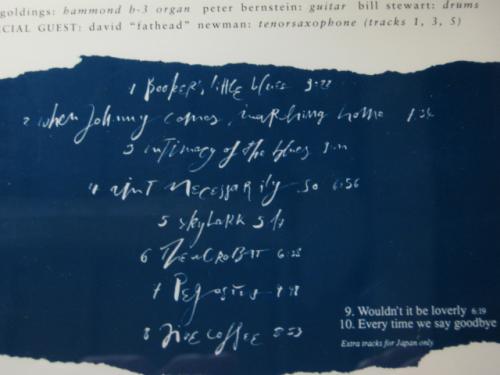 goldings: hammond b-3 organ peter bernstein: guitar bill stewart: drums
ECIAL GUEST: david "fathead" newman: tenorsaxophone (tracks 1, 3, 5)
1 Booker's little blues
2 when Johnny comes marching home
3 intimacy of the blues
4 aint necessarily so 6:56
5 skylark
6
7
8 Jive coffee
9. Wouldn't it be loverly 6:19
10. Every time we say goodbye
Extra tracks for Japan only